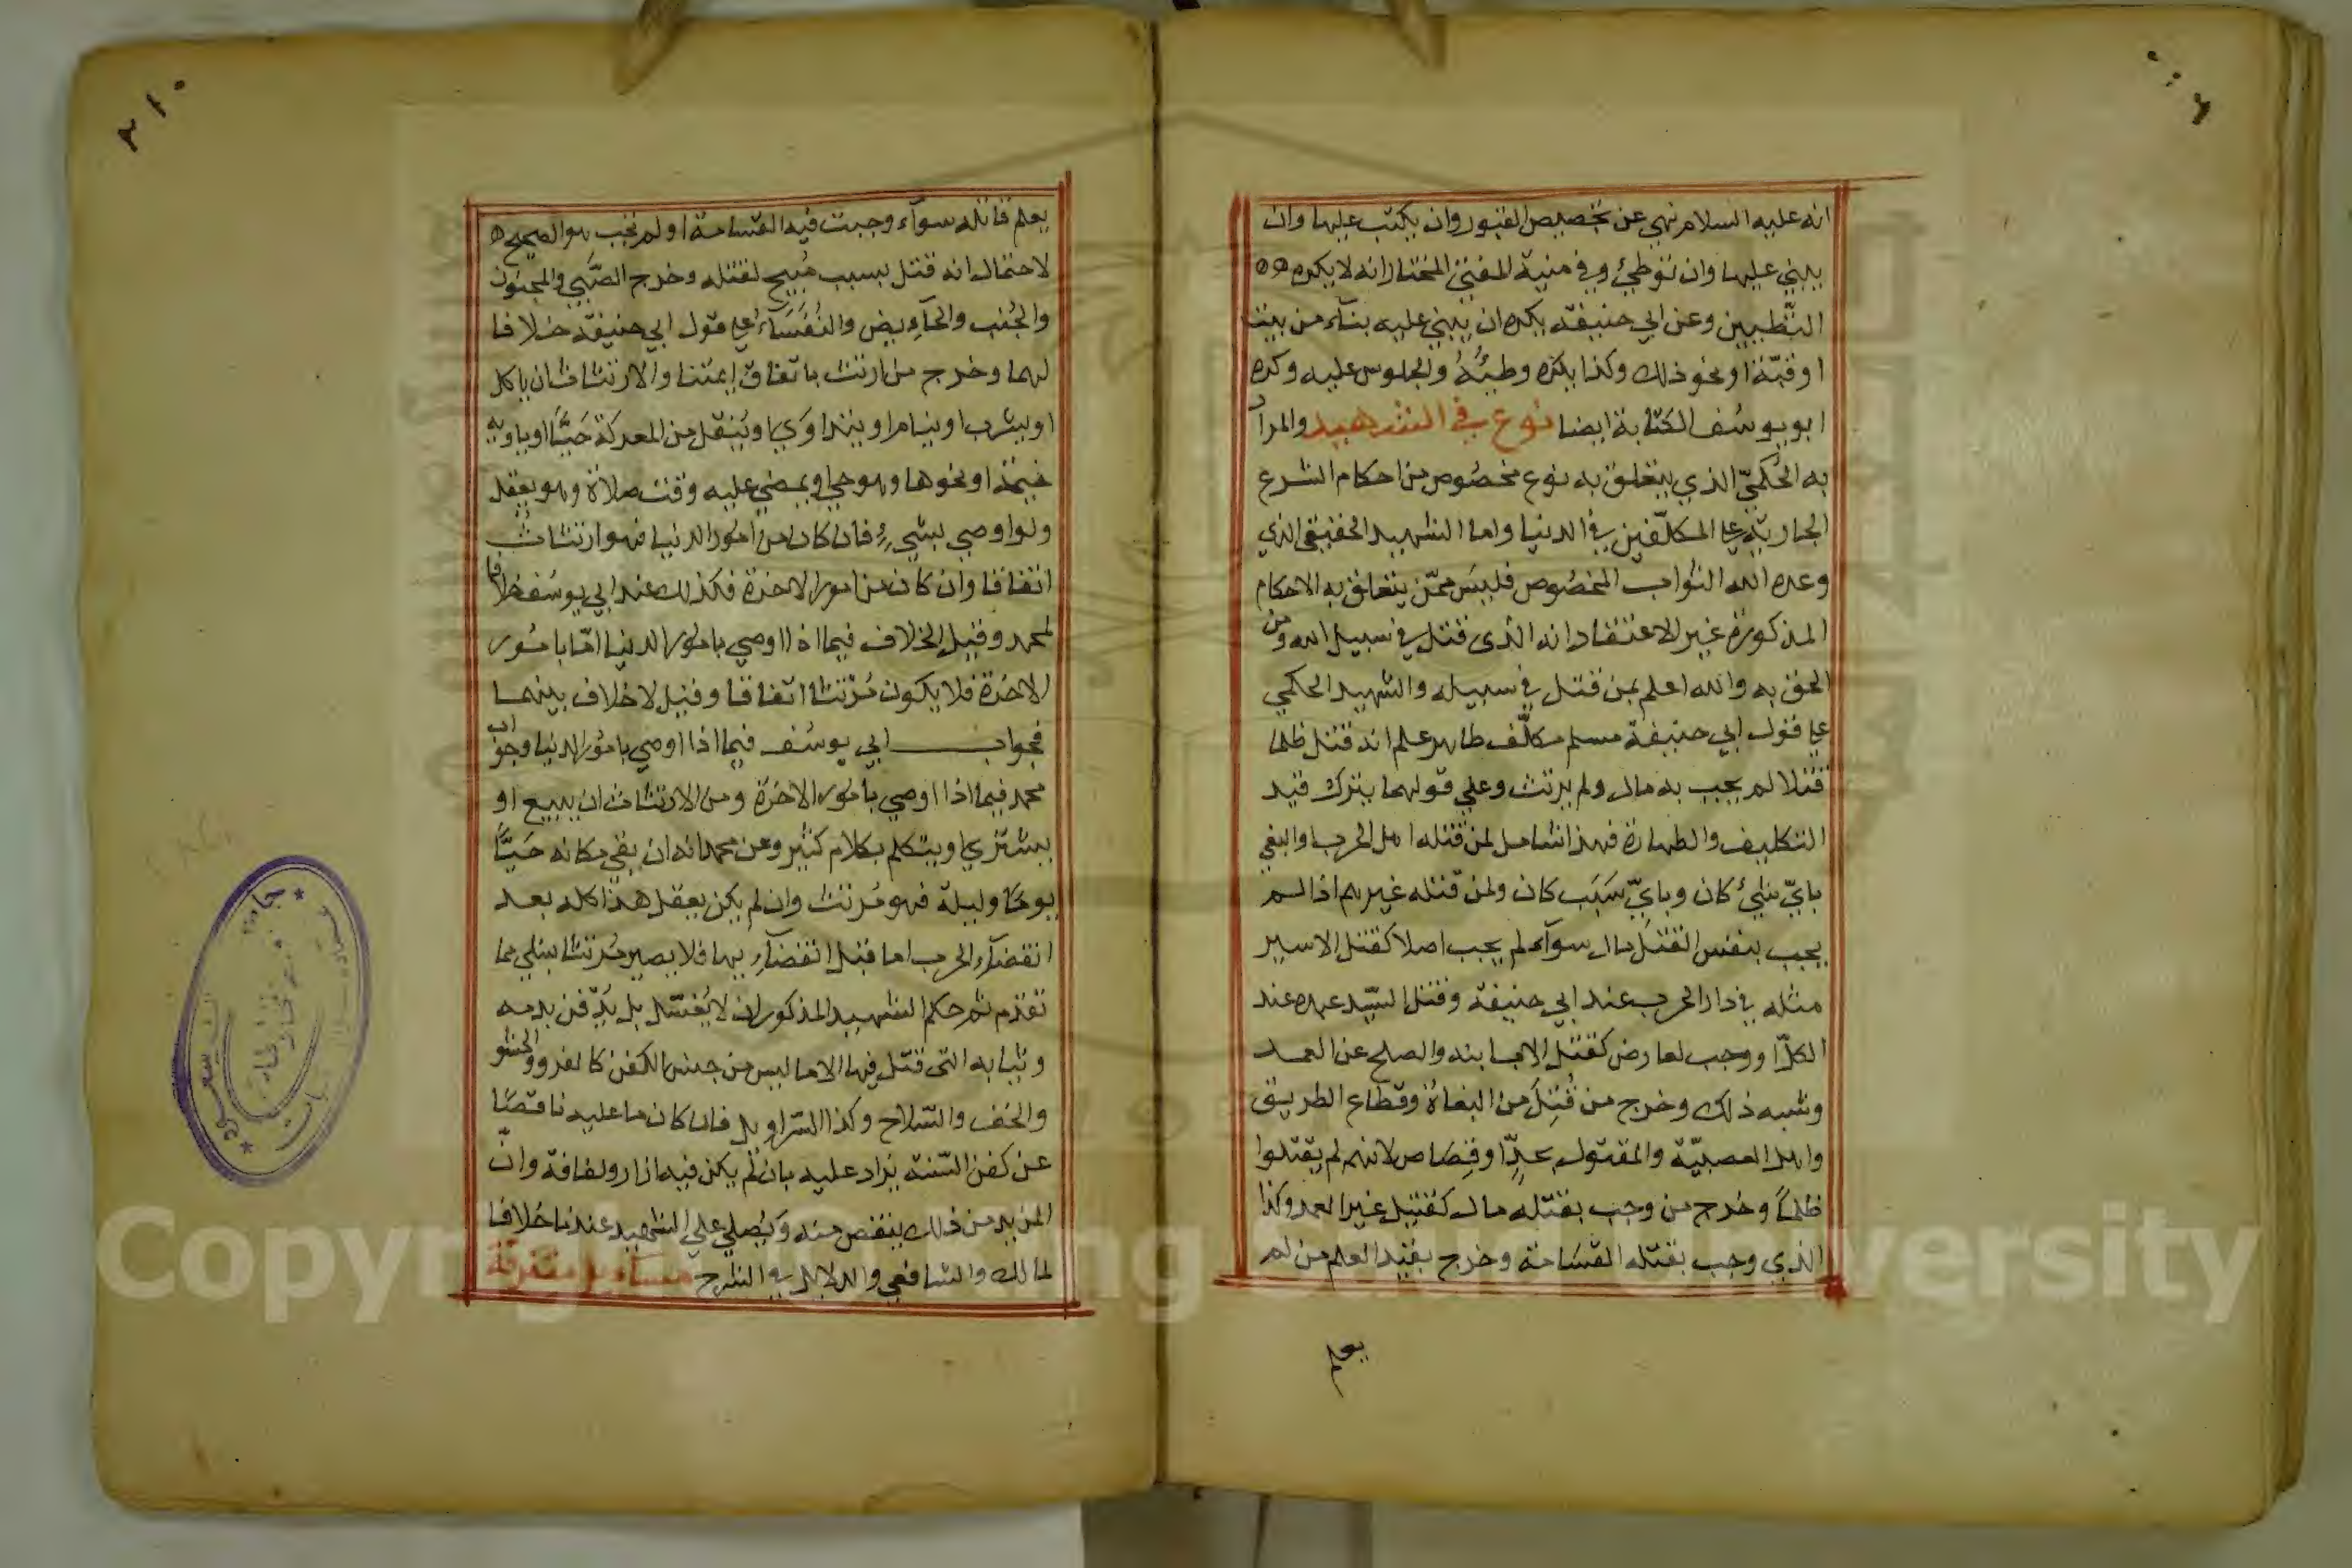 انه عليه السلام نهى عن تجصيص القبور وان يكتب عليها وان
يبنى عليها وان توطئ وفي منية المفتي المختار انه لا يكره
التطيين وعن ابي حنيفة يكره ان يبني عليه بناء من بيت
او قبة او نحو ذلك وكذا يكره وطئه والجلوس عليه وكره
ابو يوسف الكتابة ايضا نوع في الشهيد والمراد
به الحكمي الذي يتعلق به نوع مخصوص من احكام الشرع
الجارية على المكلفين في الدنيا واما الشهيد الحقيقي الذي
وعده الله الثواب المخصوص فليس ممن يتعلق به الاحكام
المذكورة غير الاعتقاد انه الذي قتل في سبيل الله ومن
الحق به والله اعلم بمن قتل في سبيله والشهيد الحكمي
على قول ابي حنيفة مسلم مكلف طاهر علم انه قتل ظلما
قتلا لم يجب به مال ولم يرتث وعلى قولهما يترك قيد
التكليف والطهارة فهذا شامل لمن قتله اهل الحرب والبغي
باي شئ كان وباي سبب كان ولمن قتله غيرهم اذا لم
يجب بنفس القتل مال سواء لم يجب اصلا كقتل الاسير
مثله في دار الحرب عند ابي حنيفة وقتل السيد عبده عند
الكل او وجب لعارض كقتل الاب ابنه والصلح عن العمد
وشبه ذلك وخرج من قتل من البغاة وقطاع الطريق
واهل العصبية والمقتول بحد او قصاص لانهم لم يقتلوا
ظلما وخرج من وجب بقتله مال كقتيل غير العمد وكذا
الذي وجب بقتله القسامة وخرج بقيد العلم من لم
يعلم
٢١٠
يعلم قاتله سواء وجبت فيه القسامة او لم تجب هو الصحيح
لاحتمال انه قتل بسبب مبيح لقتله وخرج الصبي والمجنون
والجنب والحايض والنفساء على قول ابي حنيفة خلافا
لهما وخرج من ارتث باتفاق ايمتنا والارتثاث ان ياكل
او يشرب او ينام او يتداوي او ينقل من المعركة حيا او ياويه
خيمة او نحوها وهو حي او يمضي عليه وقت صلاة وهو يعقل
ولو اوصي بشيء فان كان من امور الدنيا فهو ارتثاث
اتفاقا وان كان من امور الاخرة فكذلك عند ابي يوسف خلافا
لمحمد وقيل الخلاف فيما اذا اوصي بامور الدنيا اما بامور
الاخرة فلا يكون مرتثا اتفاقا وقيل لا خلاف بينهما
فجواب ابي يوسف فيما اذا اوصي بامور الدنيا وجواب
محمد فيما اذا اوصي بامور الاخرة ومن الارتثاث ان يبيع او
يشتري او يتكلم بكلام كثير وعن محمد انه ان بقي مكانه حيا
يوما وليلة فهو مرتث وان لم يكن يعقل هذا كله بعد
انقضاء الحرب اما قبل انقضايها فلا يصير مرتثا بشي مما
تقدم ثم حكم الشهيد المذكور ان لا يغسل بل يدفن بدمه
وثيابه التي قتل فيها الا ما ليس من جنس الكفن كالفرو والحشو
والخف والسلاح وكذا السراويل فان كان ما عليه ناقصا
عن كفن السنة يزاد عليه بان لم يكن فيه ازار ولفافة وان
ازيد من ذلك ينقص منه ويصلي على الشهيد عندنا خلافا
لمالك والشافعي والدلايل في الشرح مسائل متفرقة
Copyright © King Saud University